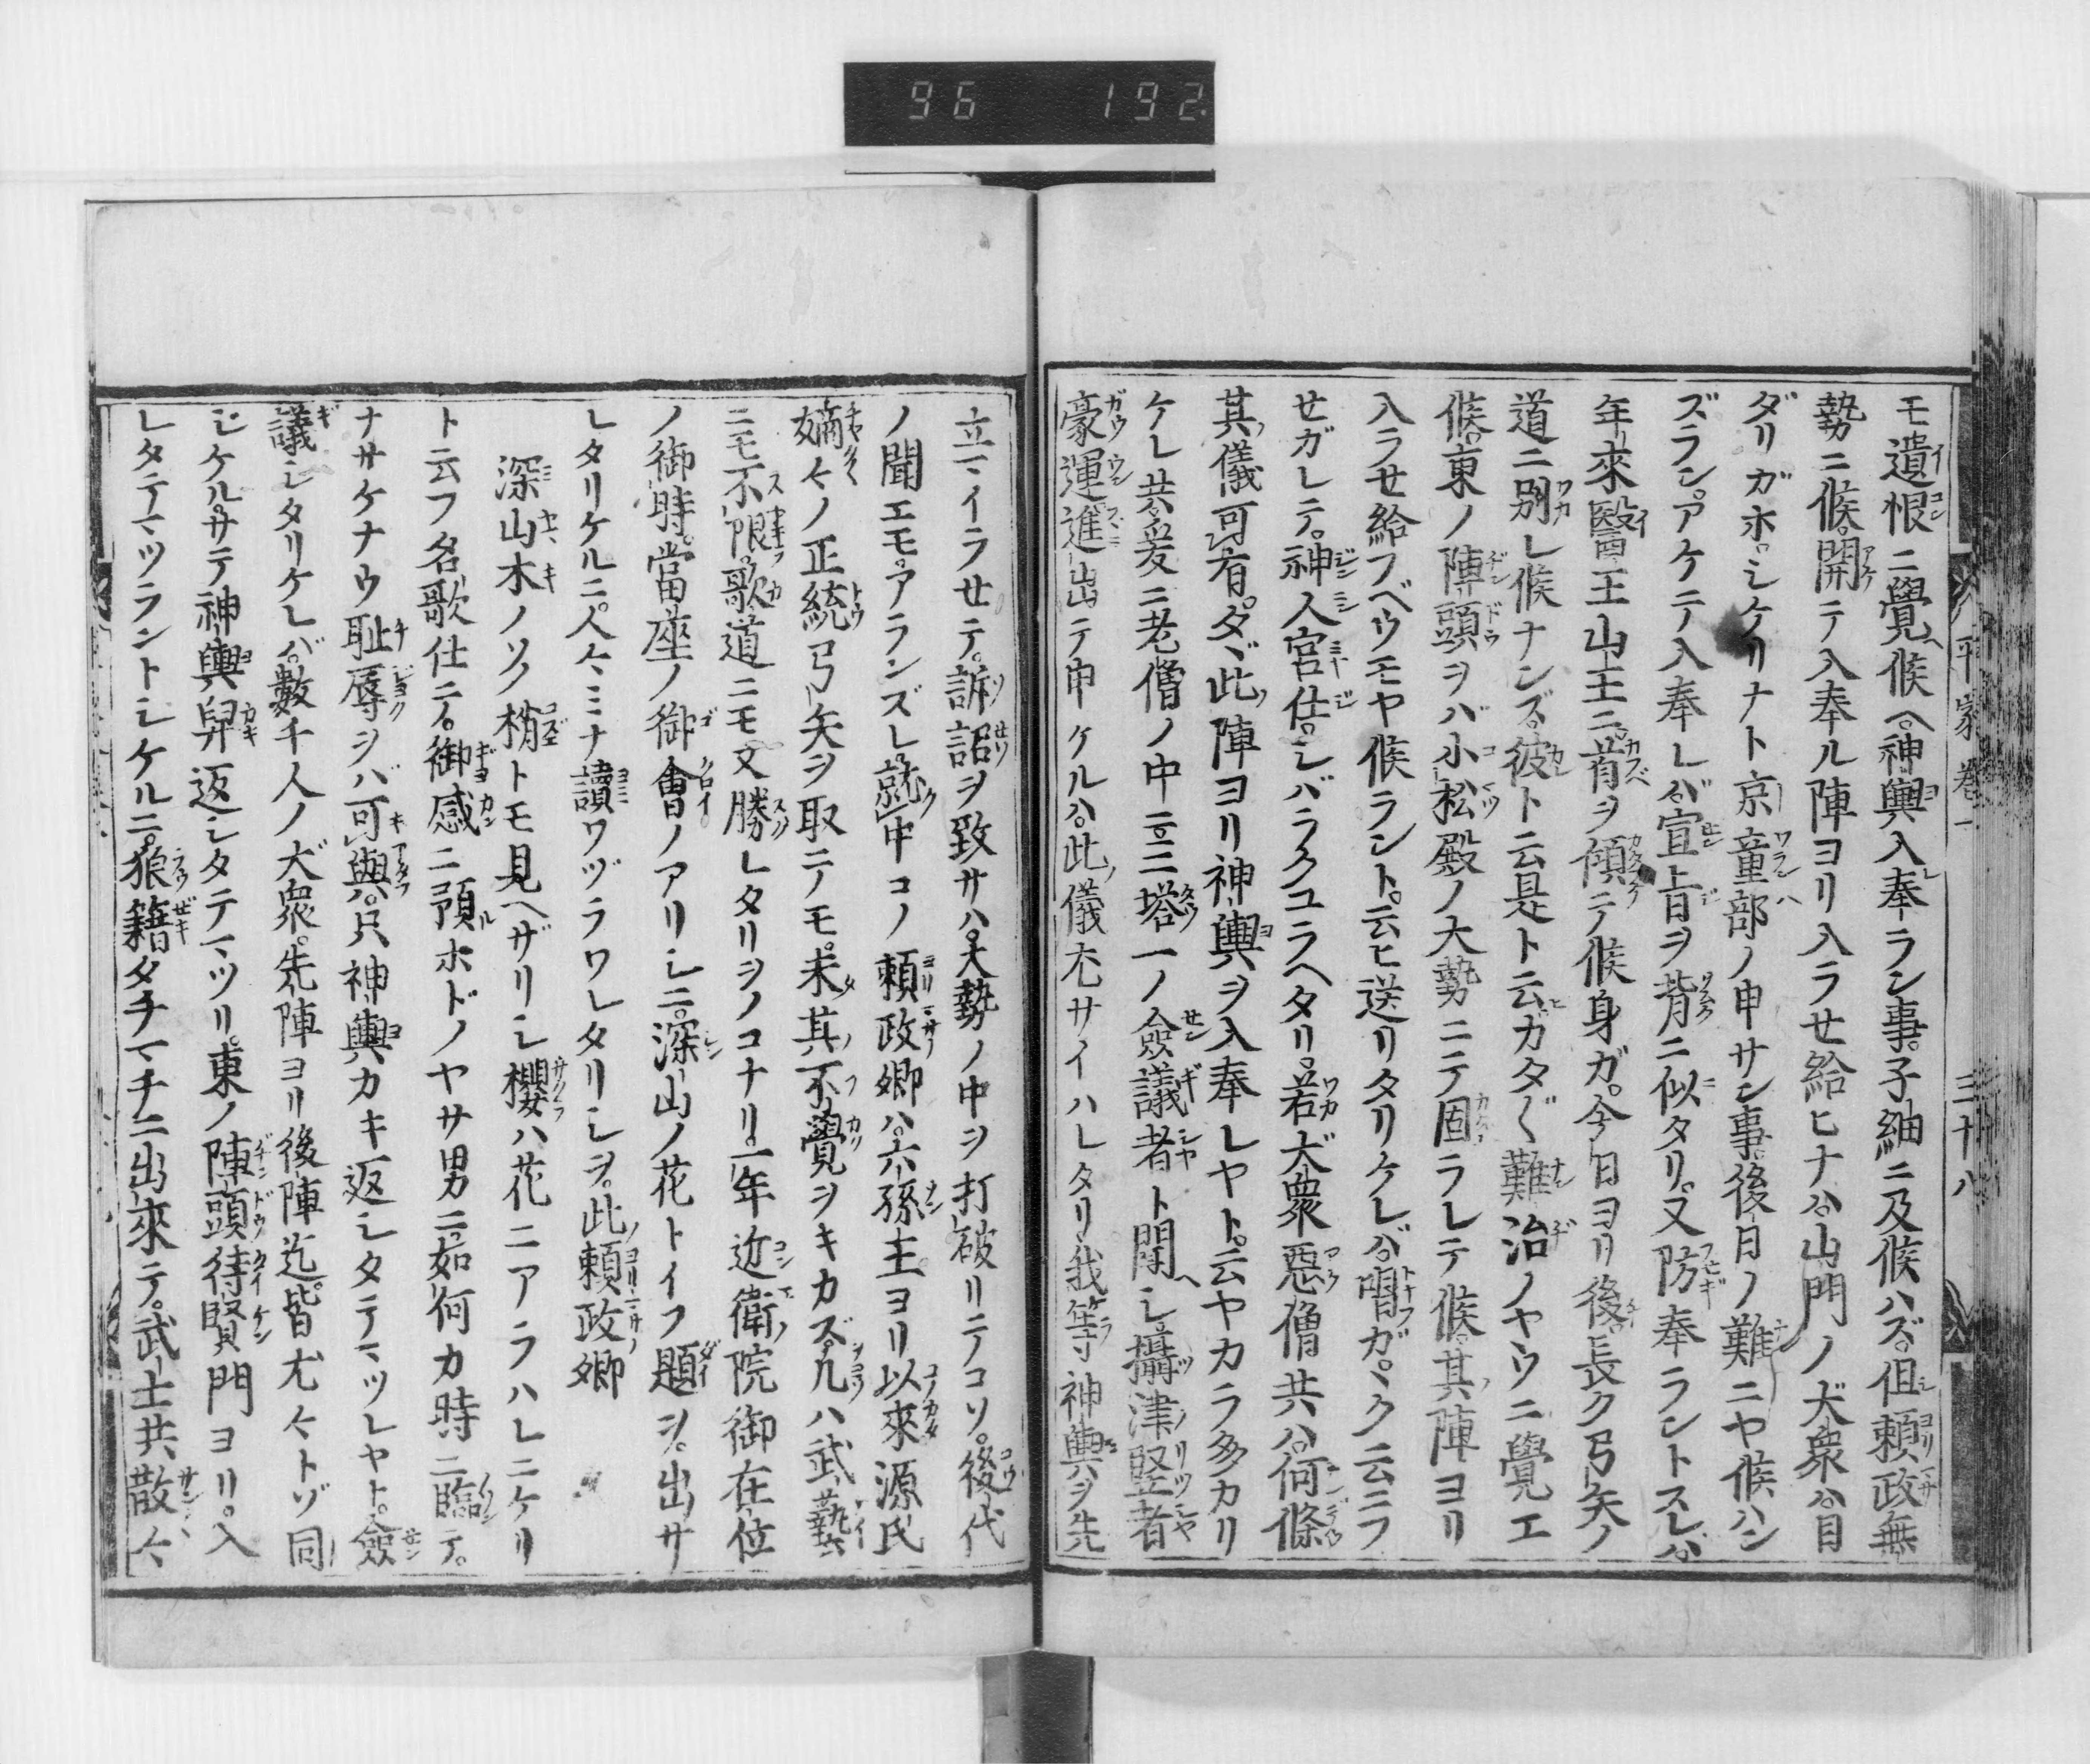 96 192
平家巻一 三十八
モ遺恨ニ覺候ヘ。神輿入奉ラン事。子細ニ及候ハズ。但頼政無
勢ニ候。開テ入奉ル陣ヨリ入ラせ給ヒナハ。山門ノ大衆ハ。目
ダリガホ。シケリナト京童部ノ申サン事。後日ノ難ニヤ候ハン
ズラン。アケテ入奉レバ。宣旨ヲ背ニ似タリ。又防奉ラントスレハ。
年來醫王山王ニ。首ヲ傾テ候身ガ。今日ヨリ後。長ク弓矢ノ
道ニ別レ候ナンズ。彼ト云是ト云。ガタ〲難治ノヤウニ覺エ
候。東ノ陣頭ヲバ小松殿ノ大勢ニテ固ラレテ候。其陣ヨリ
入ラせ給フベウモヤ候ラント。云ヒ送リタリケレバ。唱ガ。カク云ニフ
せガレテ。神人宮仕。シバラクユラヘタリ。若大衆惡僧共ハ。何條
其儀可有。タヾ此陣ヨリ神輿ヲ入奉レヤト。云ヤカラ多カリ
ケレ共。爰ニ老僧ノ中ニ。三塔一ノ僉議者ト聞ヘシ。攝津竪者
豪運進出テ申ケルハ。此儀尤サイハレタリ。我等神輿ヲ先
立マイラせテ。訴詔ヲ致サハ。大勢ノ中ヲ打破リテコソ。後代
ノ聞エモ。アランズレ。就中コノ頼政卿ハ。六孫王ヨリ以來源氏
嫡々ノ正統弓矢ヲ取テモ。未其不覺ヲキカズ。凢ハ武藝
ニモ不限。歌道ニモ又勝レタリヲノコナリ。一年近衛院御在位
ノ御時。當座ノ御會ノアリシニ。深山ノ花トイフ題ヲ。出サ
レタリケルニ。人々ミナ讀ワヅラワレタリシヲ。此頼政卿
深山木ノソノ梢トモ見ヘザリシ櫻ハ花ニアラハレニケリ
ト云フ名歌仕テ。御感ニ預ホドノヤサ男ニ。如何カ時ニ臨テ。
ナサケナウ耻辱ヲバ可與。只神輿カキ返シタテマツレヤト。僉
議シタリケレバ。數千人ノ大衆。先陣ヨリ後陣迄。皆尤々トゾ同
ジケル。サテ神輿舁返シタテマツリ。東ノ陣頭待賢門ヨリ。入
レタテマツラントシケルニ。狼籍タチマチニ出來テ。武士共散々